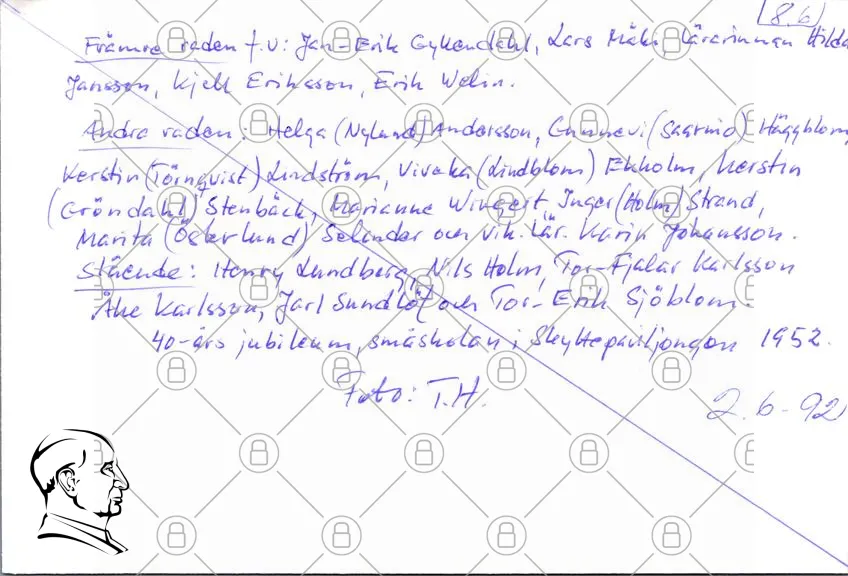 [8.6]
Främre raden f.v: Jan-Erik Gyllendahl, Lars Mäki, Lärarinnan Hilda
Jansson, Kjell Eriksson, Erik Welin.
Andra raden: Helga (Nylund) Andersson, Gunnevi (Saarinio) Häggblom,
Kerstin (Törnqvist) Lindström, Viveka (Lindblom) Ekholm, Kerstin
(Gröndahl) Stenbäck, Marianne Wingert, Inger (Holm) Strand,
Marita (Österlund) Selander och vik. lär. Karin Johansson.
Stående: Henry Lundberg, Nils Holm, Tor-Fjalar Karlsson
Åke Karlsson, Jarl Sundlöf och Tor-Erik Sjöblom.
40-års jubileum, småskolan i Skyttepaviljongen 1952.
Foto: T.H.
2.6-92